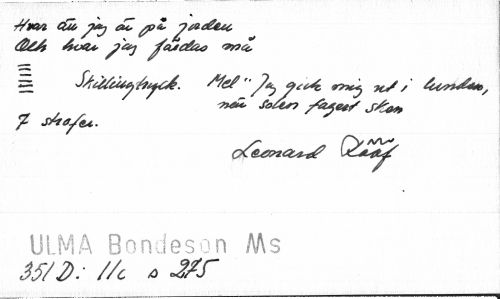 Hvar än jag är på jorden
Och hvar jag färdas må
Skillingtryck. Mel "Jag gick mig ut i lunden,
när solen fagert sken
7 strofer.
Leonard Rääf
ULMA Bondeson Ms
351 D: 11c s 275